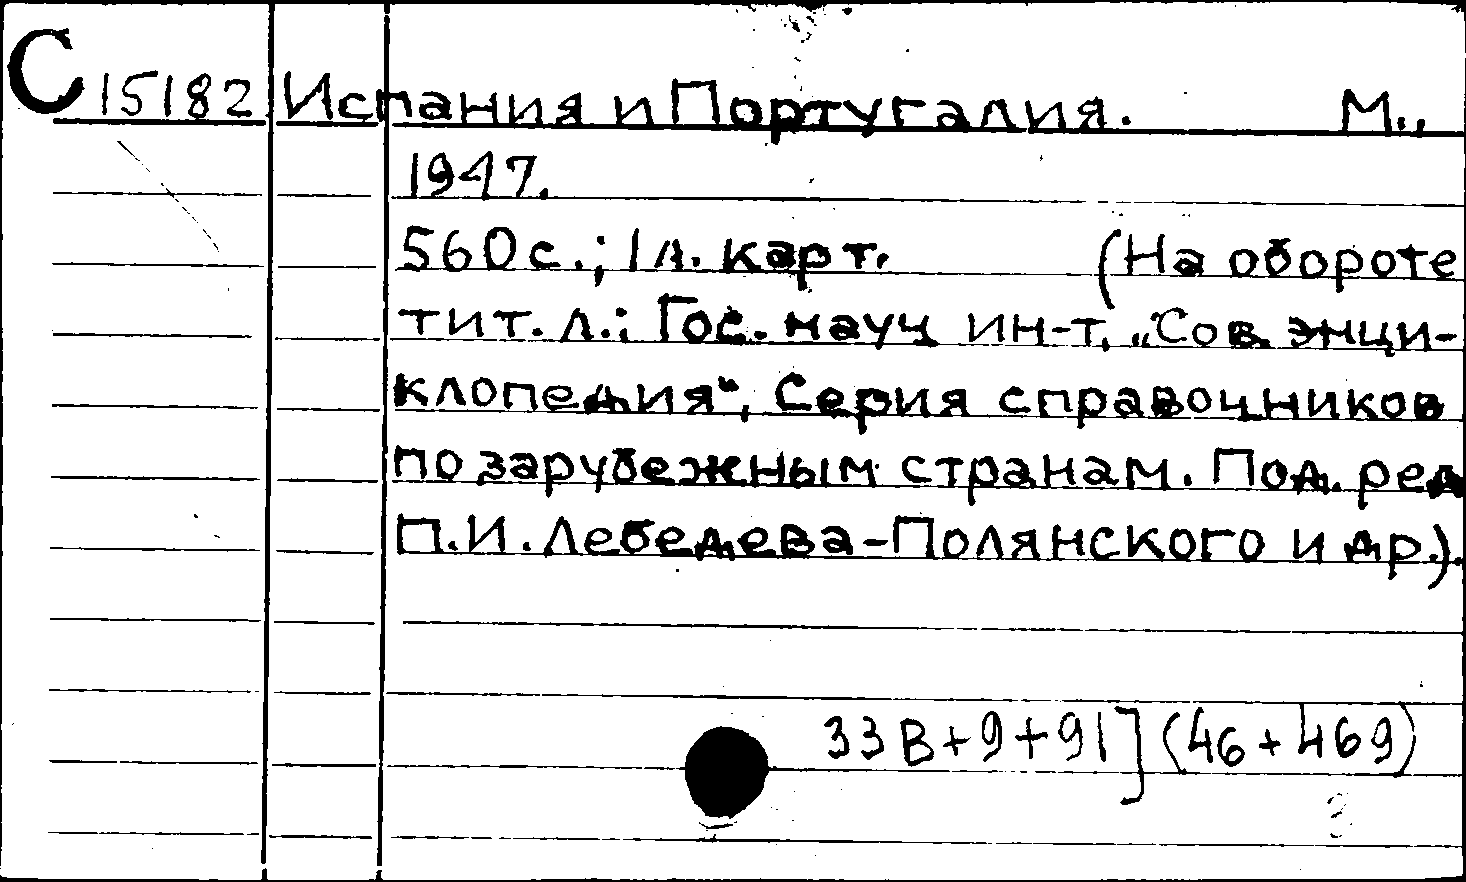 С 15182 Испания и Португалия. М.,
1947.
560 с.; 1 л. карт. (На обороте
тит. л.: Гос. науч ин-т. „Сов. энци-
клопедия“, Серия справочников
по зарубежным странам. Под. ред
П.И. Лебедева-Полянского и др.).
33В+9+91] (46+469)